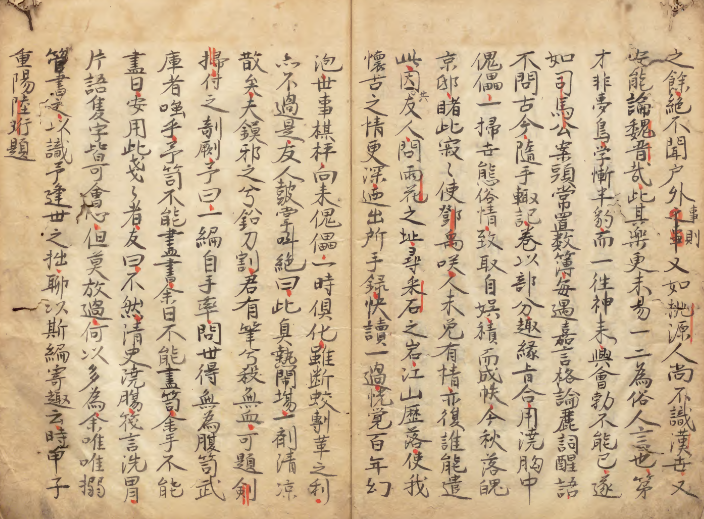 之餘絕不聞戶外事則又如桃源人尚不識漢世又
安能論魏晋哉此其樂更未易一二為俗人言也第
才非夢鳥學慚半豹而一往神来興會勃不能已遂
如司馬公案頭常置數簿每遇嘉言格論麗詞醒語
不問古今隨手輙記卷以部分趣緣旨合用澆胸中
傀儡一掃世態俗情致取自娱積而成帙今秋落魄
京邸睹此寂〻使鄧禹咲人未免有情亦復誰能遣
此因共友人問雨花之址尋采石之岩江山歷落使我
懷古之情更深廼出所手録快讀一過恍覚百年幻
泡世事棋枰向来傀儡一時俱化雖断蛟剸革之利
亦不過是友人皷掌叫絶曰此真熱閙塲一劑清凉
散矣夫鏌邪之兮鉛刀割君有筆兮殺無血可題劍
掃付之剞劂予曰一編自手率問世得無為腹笥武
庫者嗤乎予笥不能盡書余目不能盡笥余手不能
盡目安用此戔〻者友曰不然清史澆腸筏言洗胃
片語隻字皆可會心但莫放過何以多為余唯唯搦
管書末以識予逢世之拙聊以斯編寄趣云時甲子
重陽陸珩題